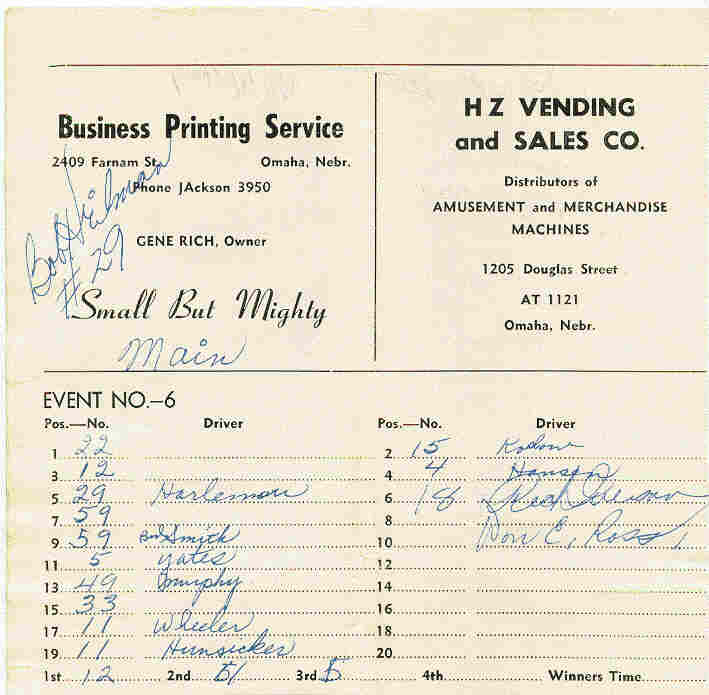 Business Printing Service
2409 Farnam St. Omaha, Nebr.
Phone JAckson 3950
GENE RICH, Owner
Bob Heilman
#29
Small But Mighty
Main
H Z VENDING
and SALES CO.
Distributors of
AMUSEMENT and MERCHANDISE
MACHINES
1205 Douglas Street
AT 1121
Omaha, Nebr.
EVENT NO.—6
Pos.—No. Driver Pos.—No. Driver
1 22 2 15
3 12 4 4 Hansen
5 29 6 18
7 59 8
9 59 Bud Smith 10 Don E. Ross
11 5 Yates 12
13 49 Murphy 14
15 33 16
17 11 Wheeler 18
19 11 Hunsicker 20
1st 12 2nd 51 3rd 5 4th Winners Time